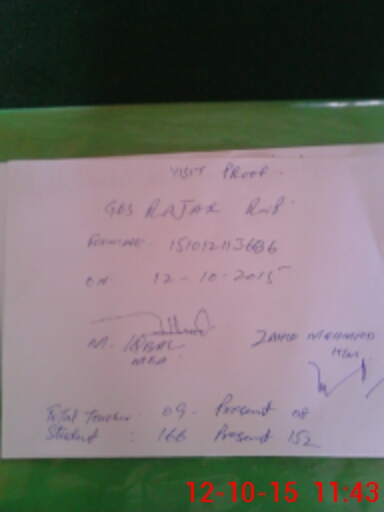 VISIT PROOF.
GBS RAJAR RWP.
Form NO. 
ON 12-10-2015
M. IQBAL ZAHID MEHMOOD
MEA HM
Total Teacher. 09. Present 08
Student : 166 Present 152
12-10-15 11:43